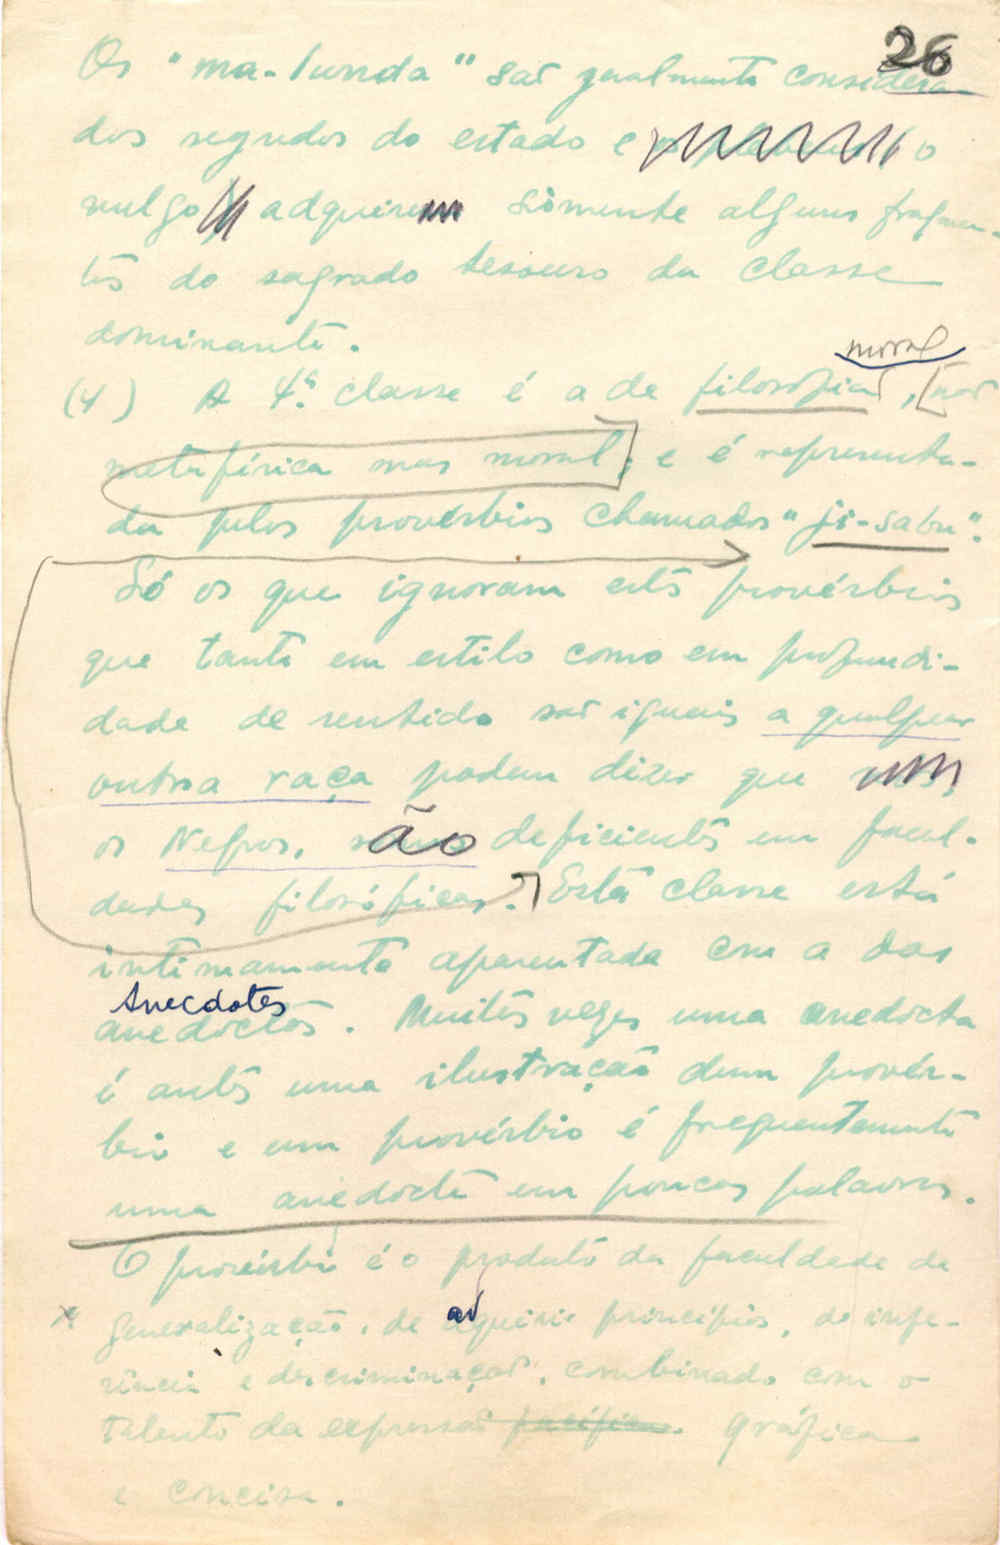 26
Os "ma-lunda" são geralmente considera
dos segredos do estado e o
vulgo adquire sòmente alguns fragmen-
tos do sagrado tesouro da classe
dominante.
moral
(4) A 4ª classe é a de filosofia, [não
metafísica mas moral, e é representa-
da pelos provérbios chamados "ji-sabu".
Só os que ignoram estes provérbios
que tanto em estilo como em profundi-
dade de sentido são iguais a qualquer
outra raça podem dizer que
os Negros, são deficientes em facul-
dades filosóficas. Esta classe está
intimamente aparentada com a das
Anecdotes
anedoctes. Muitas vezes uma anedocta
é antes uma ilustração dum provér-
bio e um provérbio é frequentemente
uma anedocta em poucas palavras.
O provérbio é o produto da faculdade de
generalização, de adquirir princípios, de infe-
rência e descriminação, combinado com o
talento da expressão gráfica
e concisa.